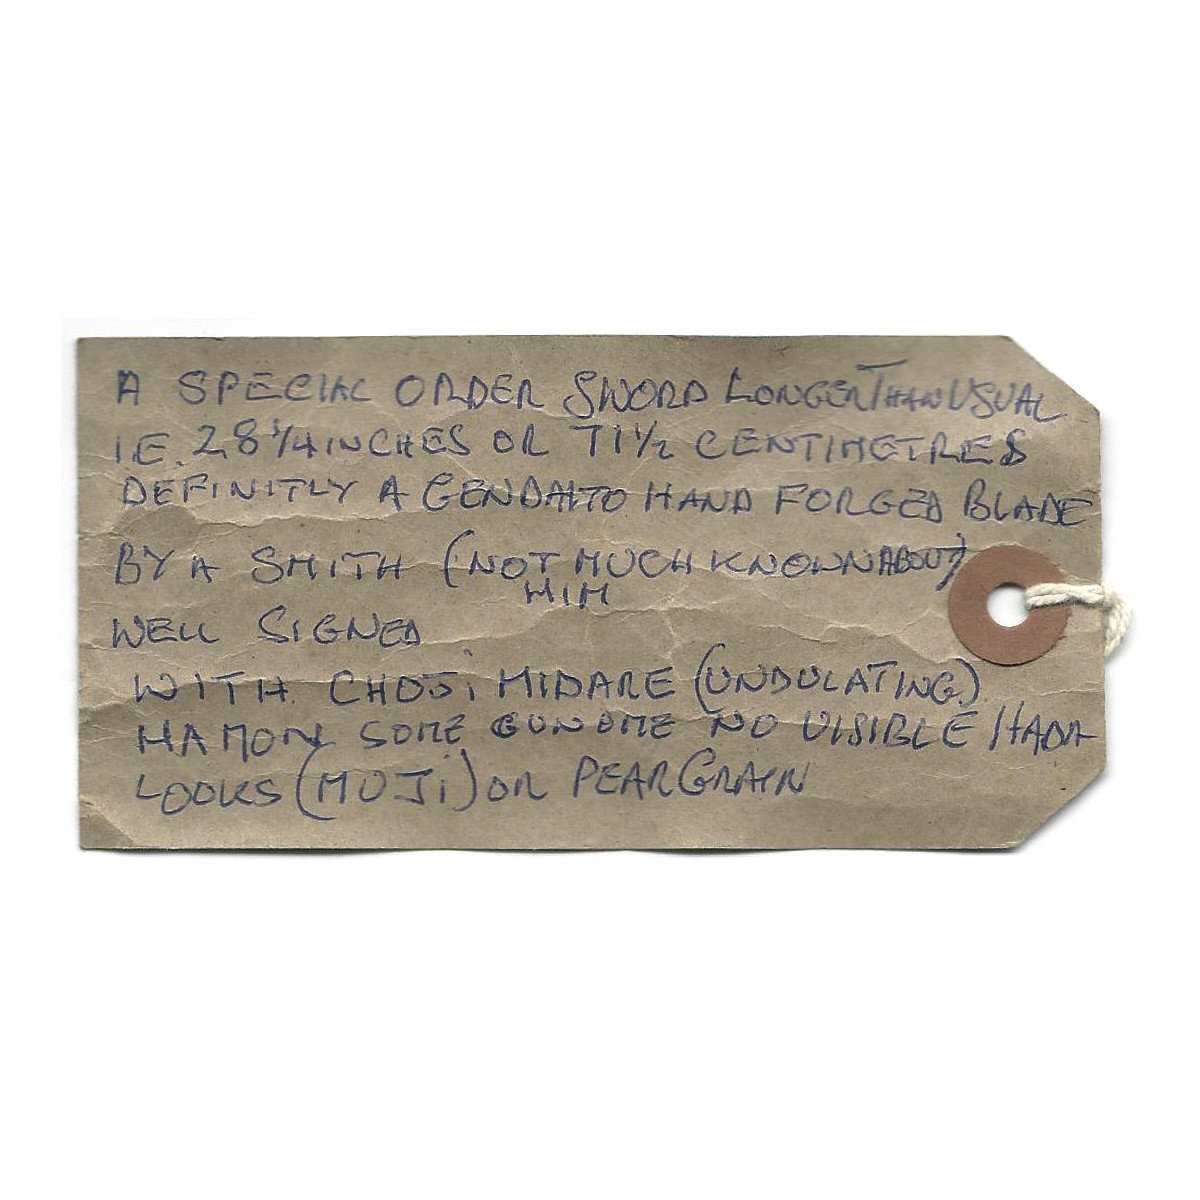 A SPECIAL ORDER SWORD LONGER THAN USUAL
I.E. 28 1/4 INCHES OR 71 1/2 CENTIMETRES
DEFINITLY A GENDAITO HAND FORGED BLADE
BY A SMITH (NOT MUCH KNOWN ABOUT)
HIM
WELL SIGNED
WITH CHOJi MIDARE (UNDULATING)
HAMON SOME GUNOME NO VISIBLE HADA
LOOKS (MUJi) OR PEAR GRAIN